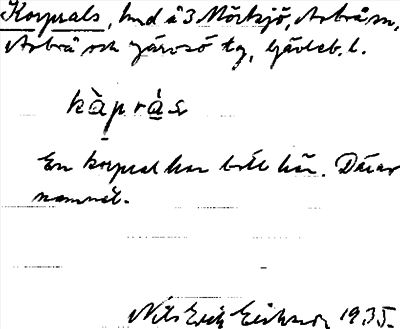 Korprals, hmd å 3 Mörtsjö, Arbrå sn,
Arbrå och Järvsö tg, Gävleb. l.
kàpràs
En korpral har bott här. Därav
namnet.
Nils Erik Eriksson 1935.